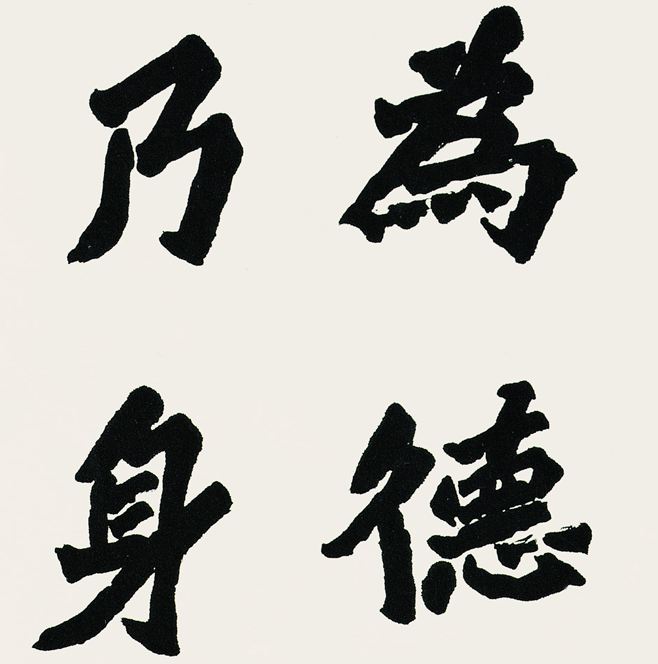 為德
乃身